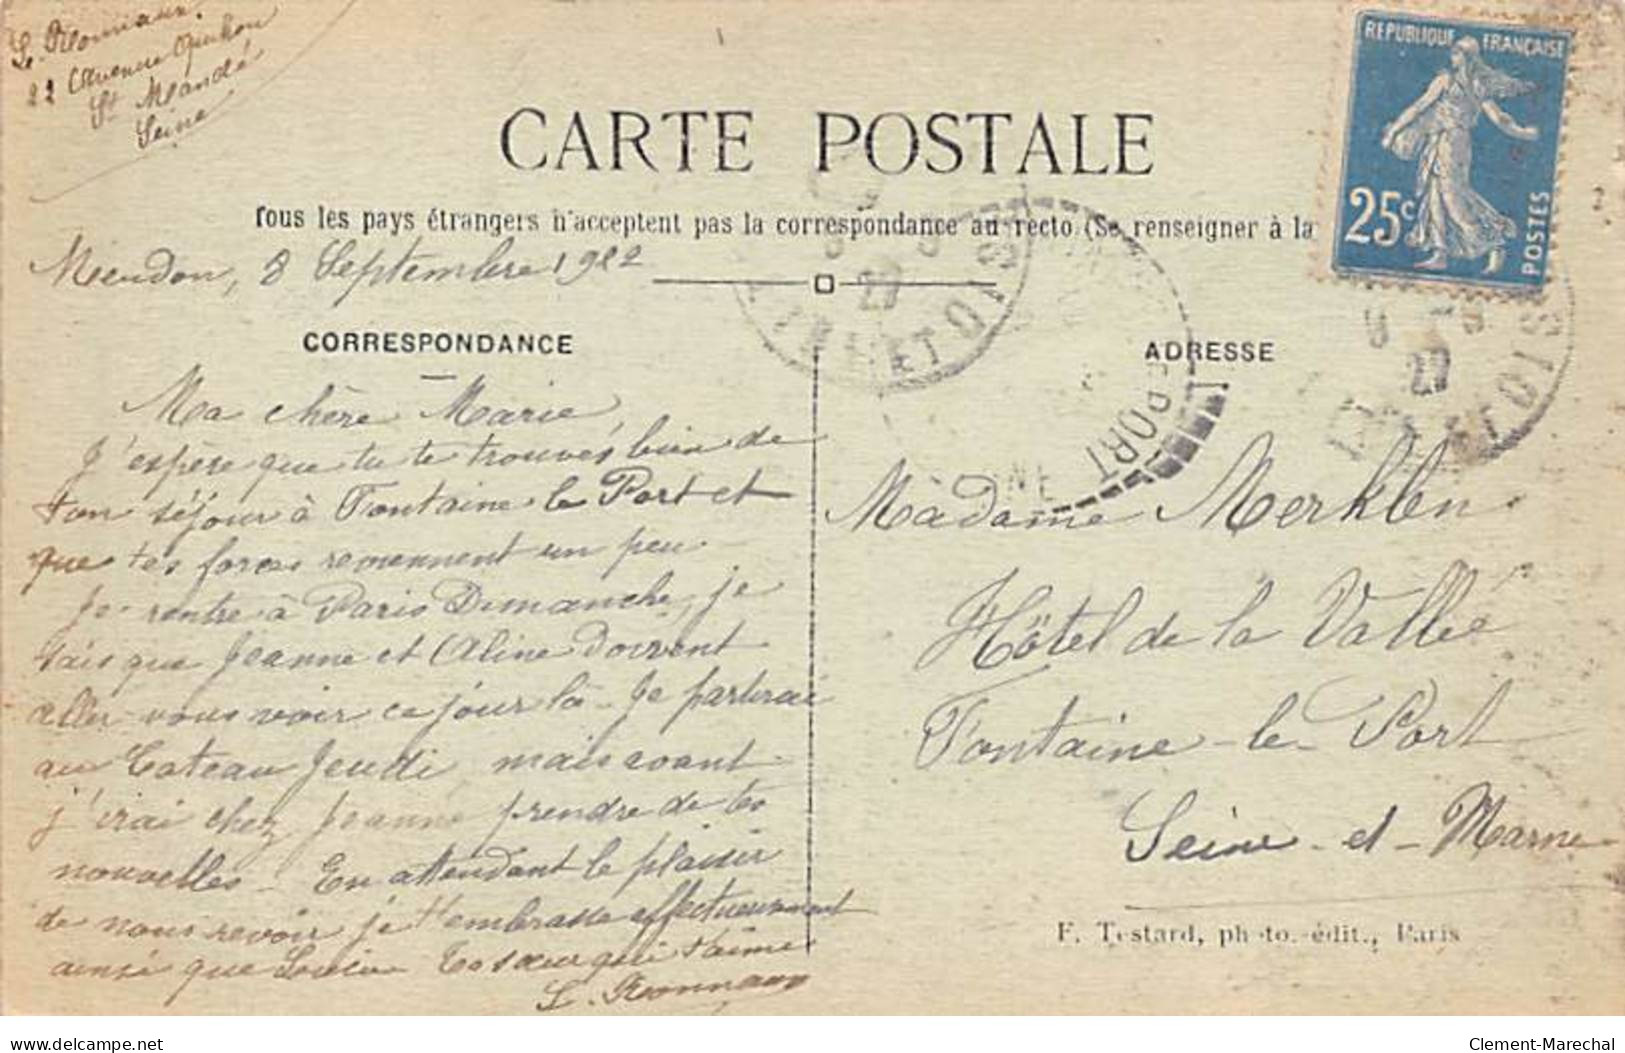 22 Avenue
St Mandé
Seine
CARTE POSTALE
Tous les pays étrangers n'acceptent pas la correspondance au recto (Se renseigner à la
REPUBLIQUE FRANÇAISE
25c
POSTES
Meudon, 8 Septembre 1922
CORRESPONDANCE
ADRESSE
ET OIS
PORT
Ma chère Marie
J'espère que tu te trouves bien de
ton séjour à Fontaine le Port et
que tes forces reviennent un peu
Je rentre à Paris Dimanche, je
sais que Jeanne et Aline doivent
aller vous voir ce jour là - Je partirai
au Cateau Jeudi mais avant
j'irai chez Jeanne prendre de tes
nouvelles - En attendant le plaisir
de nous revoir je t'embrasse affectueusement
ainsi que Louise Ta sœur qui t'aime
L.
Madame Merklen
Hôtel de la Vallée
Fontaine-le-Port
Seine-et-Marne
F. Testard, photo.-édit., Paris
delcampe.net
Clement-Marechal